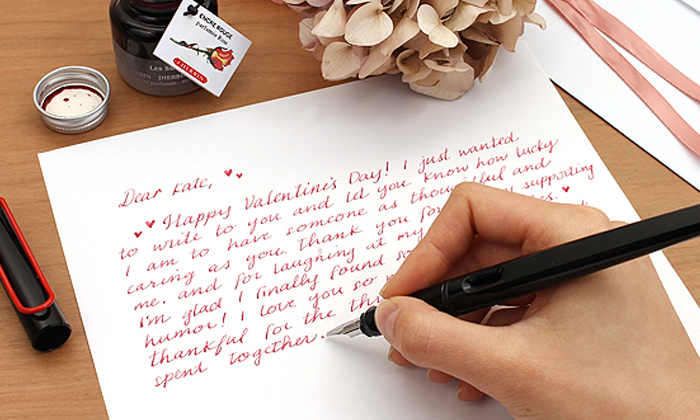 ENCRE ROUGE
Parfumée Rose
J.HERBIN
Les
J.HERBIN
Dear Kate,
Happy Valentine's Day! I just wanted
to write to you and let you know how lucky
I am to have someone as thoughtful and
caring as you. Thank you for supporting
me, and for laughing at my
I'm glad I finally found
humor! I love you so
thankful for the
spent together.